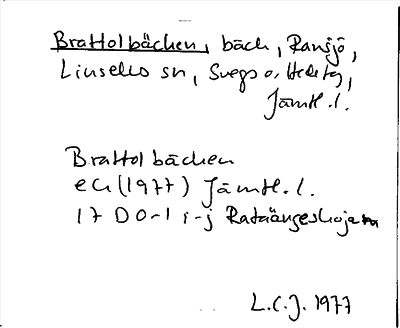 Brattolbäcken, bäck, Ransjö,
Linsells sn, Svegs o. Heds tg,
Jämtl. l.
Brattolbäcken
ek (1977) Jämtl. l.
17 D 0-1 i-j
L.C.J. 1977